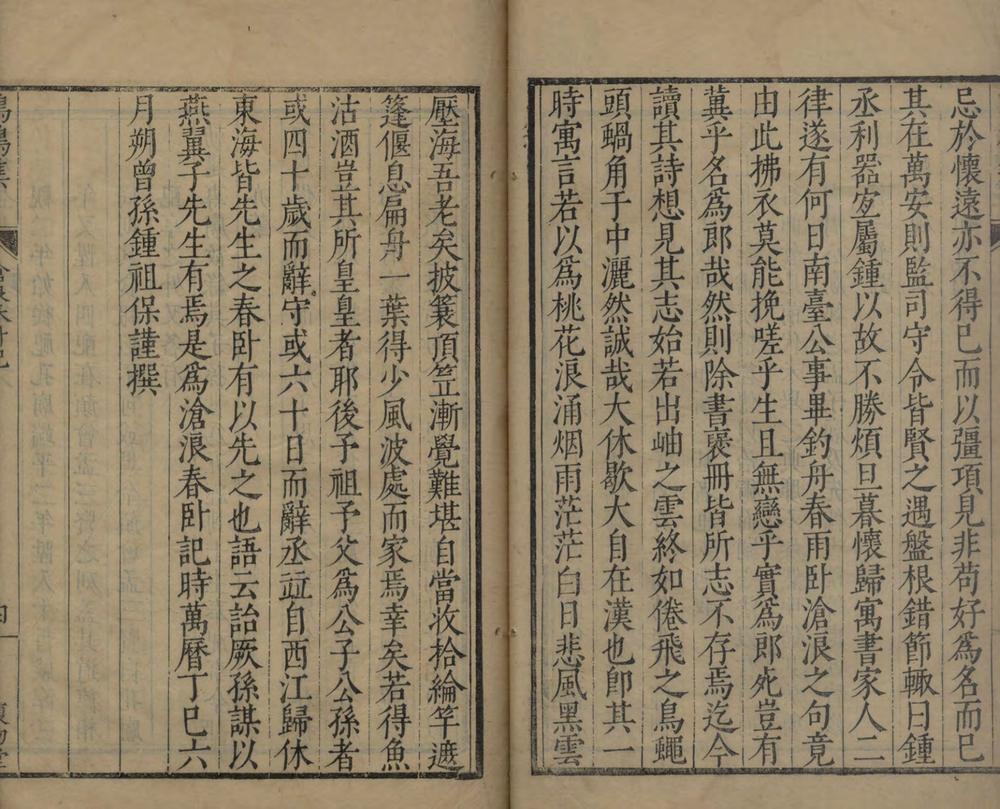 忌於懷遠亦不得已而以彊項見非苟好爲名而已
其在萬安則監司守令皆賢之遇盤根錯節輒曰鍾
丞利器宐屬鍾以故不勝煩旦暮懷歸寓書家人二
律遂有何日南臺公事畢釣舟春雨卧滄浪之句竟
由此拂衣莫能挽嗟乎生且無戀乎實爲郎死豈有
蓂乎名爲郎哉然則除書褒冊皆所志不存焉迄今
讀其詩想見其志始若出岫之雲終如倦飛之鳥蠅
頭蝸角于中灑然誠哉大休歇大自在漢也卽其一
時寓言若以爲桃花浪涌烟雨茫茫白日悲風黑雲
壓海吾老矣披蓑頂笠漸覺難堪自當收拾綸竿遮
篷偃息扁舟一葉得少風波處而家焉幸矣若得魚
沽酒豈其所皇皇者耶後予祖予父爲公子公孫者
或四十歲而辭守或六十日而辭丞竝自西江歸休
東海皆先生之春卧有以先之也語云詒厥孫謀以
燕翼子先生有焉是爲滄浪春卧記時萬曆丁巳六
月朔曾孫鍾祖保謹撰